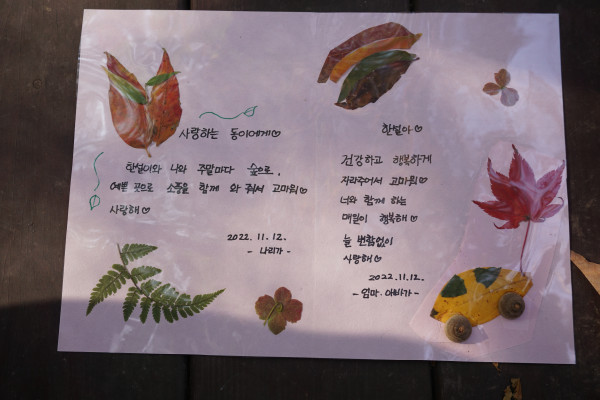 사랑하는 동이에게♡
한설이와 나와 주말마다 숲으로,
예쁜 곳으로 소풍을 함께 와 줘서 고마워♡
사랑해♡
2022. 11. 12.
- 나리가 -
한설아♡
건강하고 행복하게
자라주어서 고마워♡
너와 함께 하는
매일이 행복해♡
늘 변함없이
사랑해♡
2022.11.12.
- 엄마.아빠가 -